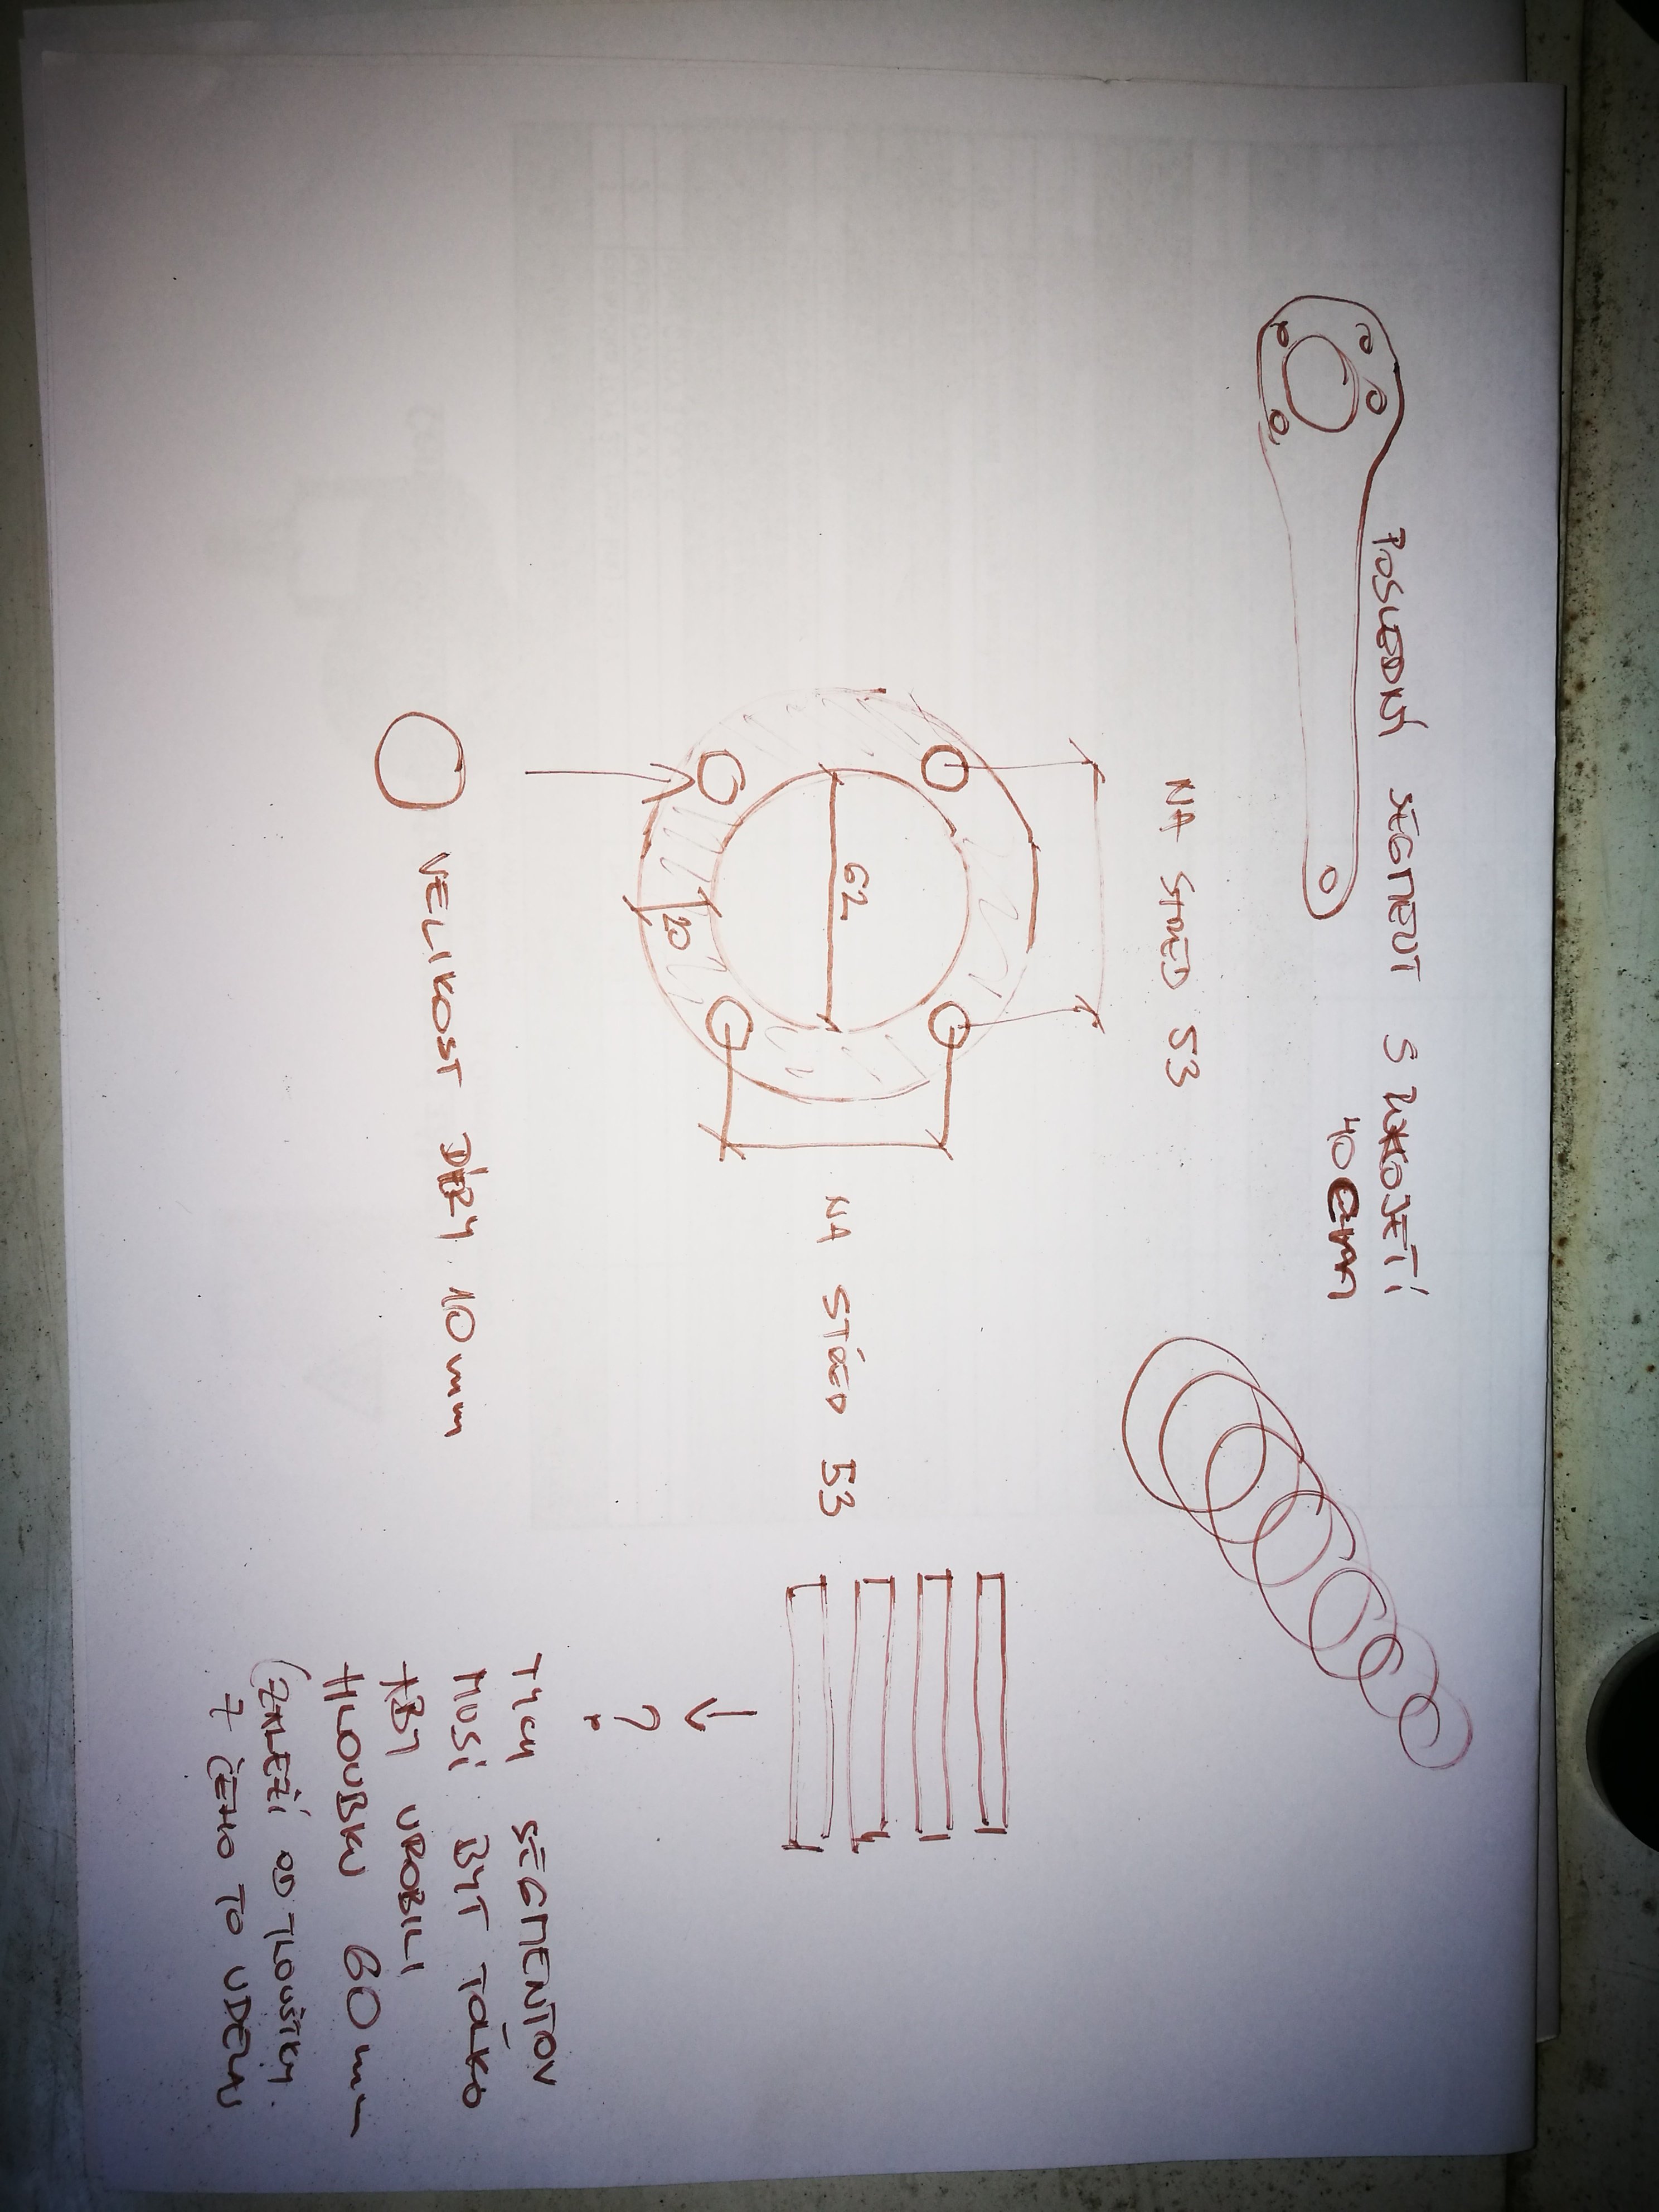 POSLEDNÍ SEGMENT S RUKOJETÍ
40 cm
NA STŘED 53
62
20
NA STŘED 53
VELIKOST DÍRY 10 mm
?
TYCH SEGMENTOV
MUSÍ BYT TOLKO
ABY UROBILI
HLOUBKU 60 mm
(ZÁLEŽÍ OD TLOUŠTKY
Z ČEHO TO UDELAJ